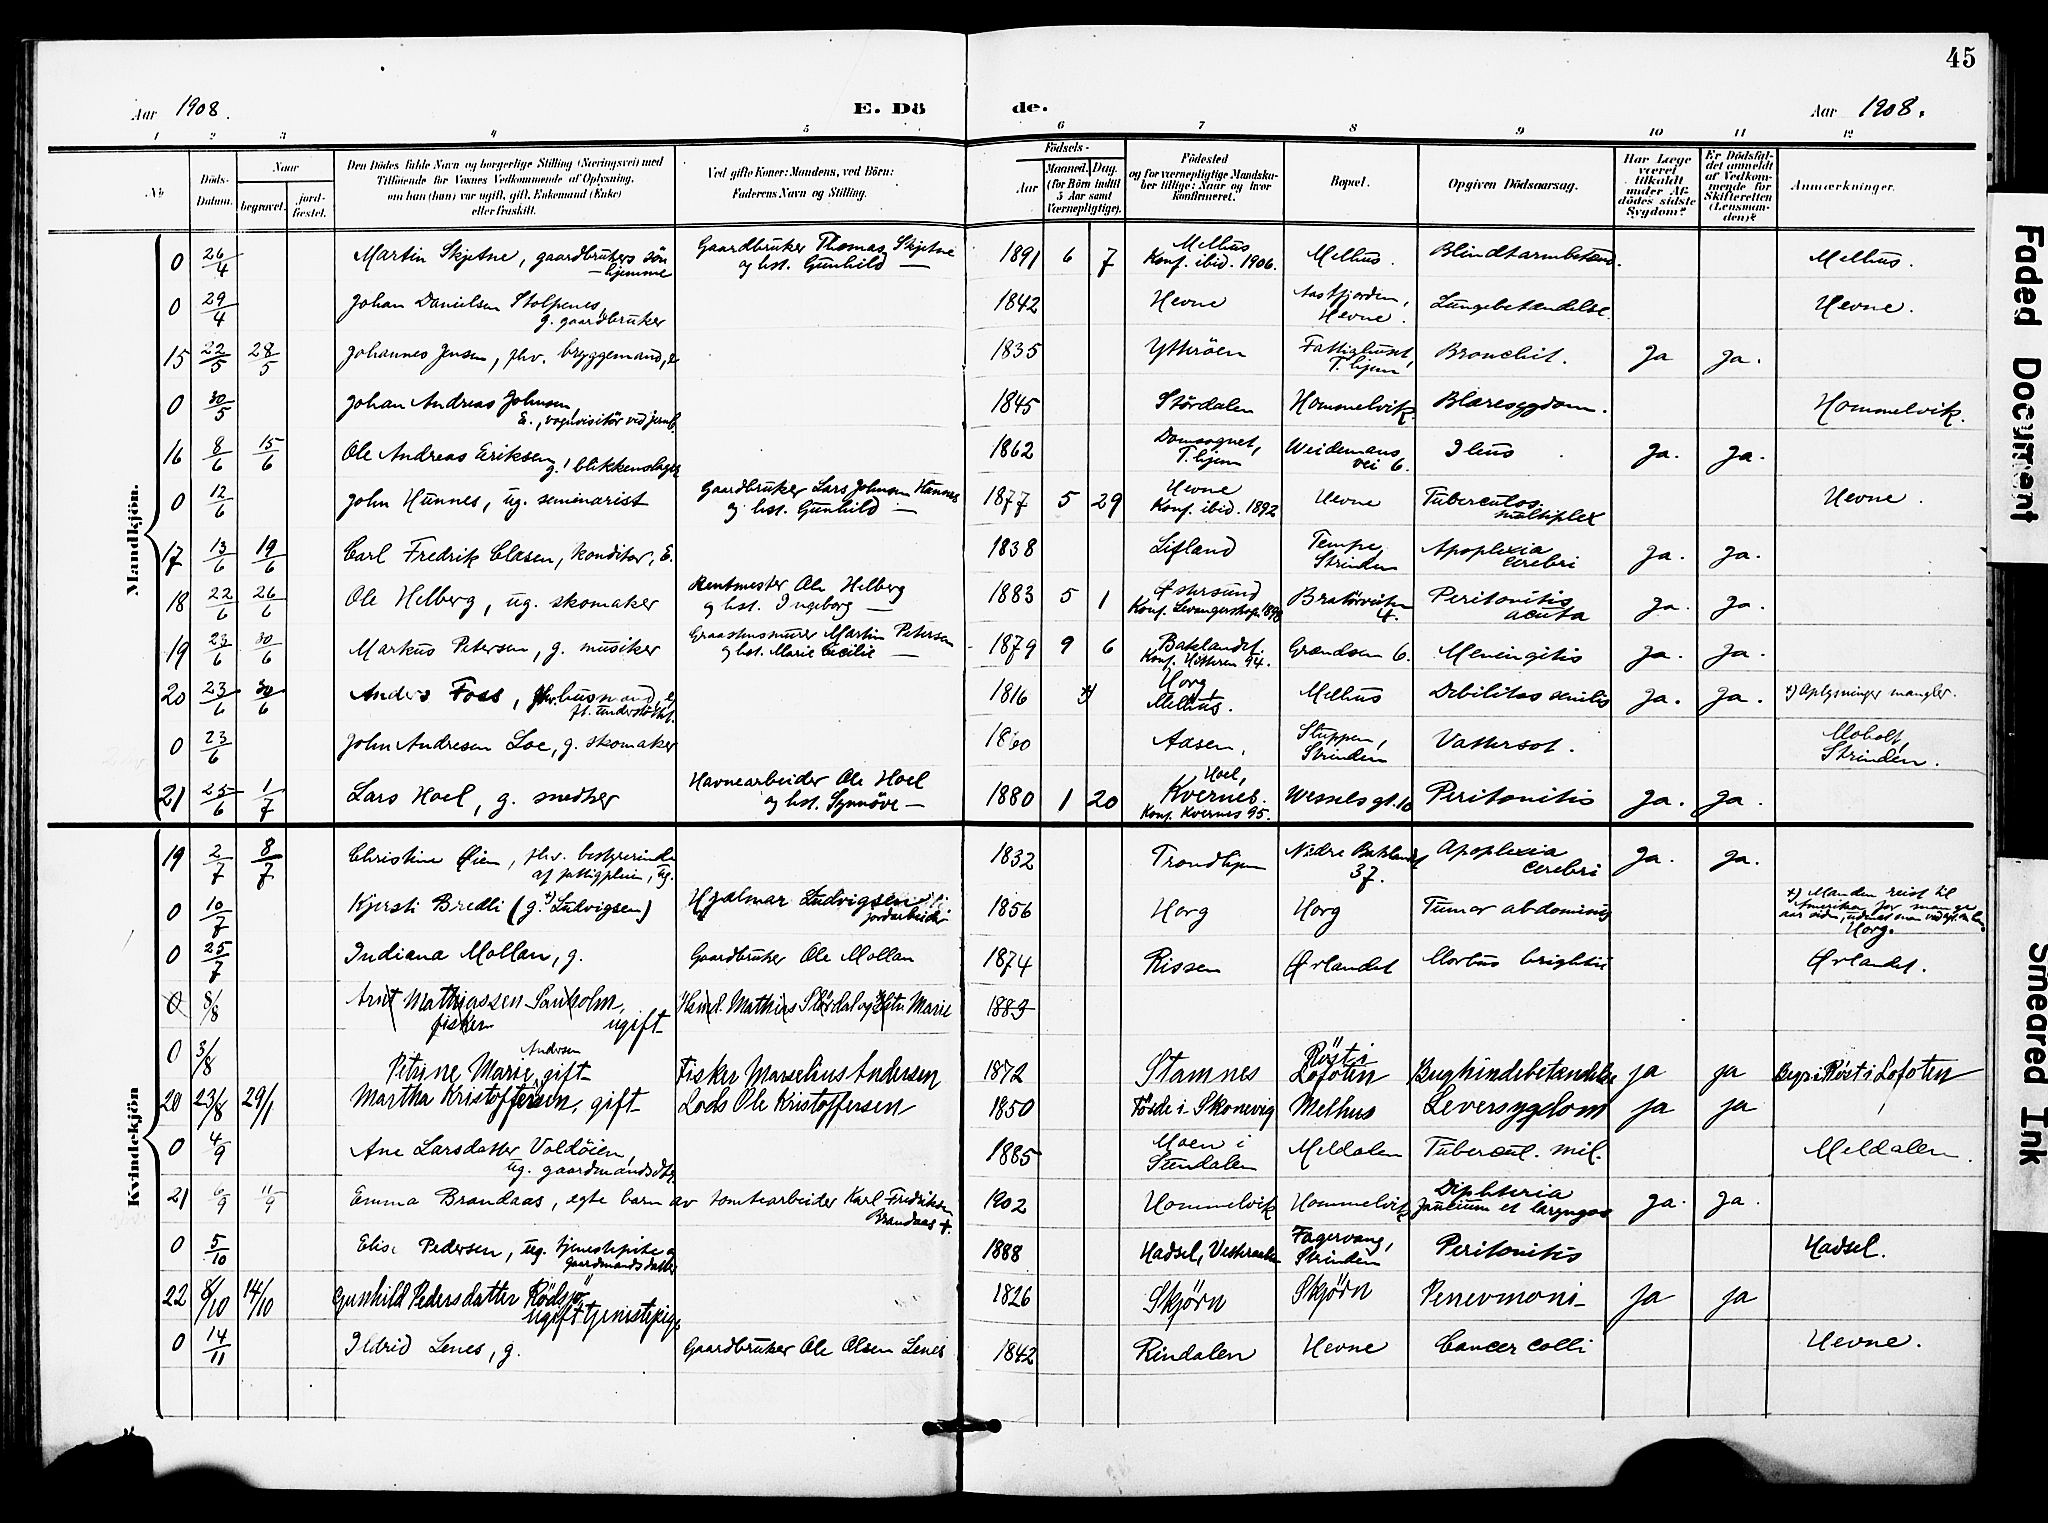 45
Aar 1908. E. Dö de. Aar 1908.
1 2 3 4 5 6 7 8 9 10 11 12
No
Döds-Datum.
Naar
begravet.
jord-fæstet.
Den Dödes fulde Navn og borgerlige Stilling (Næringsvei) med
Tilföiende for Voxnes Vedkommende af Oplysning,
om han (hun) var ugift, gift, Enkemand (Enke)
eller fraskilt.
Ved gifte Koner: Mandens, ved Börn:
Faderens Navn og Stilling.
Födsels-
Aar
Maaned.
Dag.
(for Börn indtil
5 Aar samt
Værnepligtige).
Födested
og for værnepligtige Mandska-
ber tillige: Naar og hvor
konfirmeret.
Bopæl.
Opgiven Dödsaarsag.
Har Læge
været
tilkaldt
under Af-
dödes sidste
Sygdom?
Er Dödsfal-
det anmeldt
af Vedkom-
mende for
Skifteretten
(Lensman-
den)?
Anmærkninger.
Mandkjön.
0 26/4 Martin Skjetne, gaardbrukers sön hjemme Gaardbruker Thomas Skjetne og hst. Gunhild — 1891 6 7 Melhus Konf. ibid. 1906. Melhus. Blindtarmbetænd. Melhus.
0 29/4 Johan Danielsen Stolpenes, g. gaardbruker 1842 Hevne Aastfjorden, Hevne. Lungebetændelse. Hevne.
15 22/5 28/5 Johannes Jensen, fhv. bryggemand, e 1835 Ytterøen Fattighuset, T.hjem Bronchit. Ja Ja.
0 30/5 Johan Andreas Johnsen E., vognvisitör ved jernb. 1845 Stördalen Hommelvik. Blæresygdom. Hommelvik.
16 8/6 15/6 Ole Andreas Eriksen g. blikkenslager 1862 Domsognet, T.hjem Weidemans vei 6. Ileus. Ja. Ja.
0 12/6 John Hunnes, ug. seminarist Gaardbruker Lars Johnsen Hunnes og hst. Gunhild — 1877 5 29 Hevne Konf. ibid. 1892 Hevne Tuberculos. multiplex Hevne.
17 13/6 19/6 Carl Fredrik Clasen, konditor, E. 1838 Lifland Tempe, Strinden Apoplexia cerebri Ja. Ja.
18 22/6 26/6 Ole Helberg, ug. skomaker Rentmester Ole Helberg og hst. Ingeborg — 1883 5 1 Østersund Konf. 4. Peritonitis acuta Ja. Ja.
19 23/6 30/6 Markus Petersen, g. musiker Martin Petersen og hst. Marie Cecilie — 1879 9 6 Baklandet. Konf. Hitteren 94. Grændsen 6. Meningitis Ja. Ja.
20 23/6 30/6 Anders Foss, fhv. husmand, e ft. understöttet. 1816 +) Horg, Melhus. Melhus Debilitas senilis Ja. Ja. +) Oplysninger mangler.
0 23/6 John Andresen Loe, g. skomaker 1860 Aasen, Sluppen, Strinden Vattersot. Moholt, Strinden.
21 25/6 1/7 Lars Hoel, g. smed Havnearbeider Ole Hoel og hst. Synnöve — 1880 1 20 Hoel, Kvernes. Konf. Kvernes 95. Wessels gt. 10 Peritonitis Ja. Ja.
Kvindekjön
19 2/7 8/7 Christine Øien, fhv. bestyrerinde af fattigpleien, ug. 1832 Trondhjem Nedre Bakland 37. Apoplexia cerebri Ja. Ja.
0 10/7 Kjersti Bredli (g. +) Ludvigsen) Hjalmar Ludvigsen jordarbeider 1856 Horg Horg Tumor abdominis +) Manden reist til Amerika for mange aar siden, Horg.
0 25/7 Indiana Mollan, g. Gaardbruker Ole Mollan 1874 Rissen Ørlandet Morbus brightii Ørlandet.
0 8/8 Arnt Mathiassen Sauholm, fisker ugift Husmd. Mathias Stördal og Hstr. Marie 1889
0 3/8 Petrine Marie Andersen gift Fisker Marselius Andersen 1872 Stamnes Röst i Lofoten Bughindebetændelse Ja Ja Begr. i Röst i Lofoten
20 23/8 29/1 Martha Kristoffersen, gift Lods Ole Kristoffersen 1850 Förde i Skonevig Melhus Leversygdom Ja Ja
0 4/9 Ane Larsdatter Voldöien, ug. gaardmandsdtr. 1885 Moen i Sundalen Meldalen Tubercul. mil. Meldalen.
21 6/9 11/9 Emma Brandaas, egte barn av tomtearbeider Karl Fredriksen Brandaas + 1902 Hommelvik Hommelvik Diphteria faucium et laryngos Ja. Ja.
0 5/10 Elise Pedersen, ug. tjenestepike og gaardmandsdatter 1888 Hadsel, Vesteraalen Fagervang, Strinden Peritonitis Hadsel.
22 8/10 14/10 Gunhild Pedersdatter Rödsjö ugift tjenestepige 1826 Skjörn Skjörn Penevmoni Ja Ja
0 14/11 Ildrid Lenes, g. Gaardbruker Ole Olsen Lenes 1842 Rindalen Hevne Cancer colli Hevne.
Faded Document
Smeared Ink